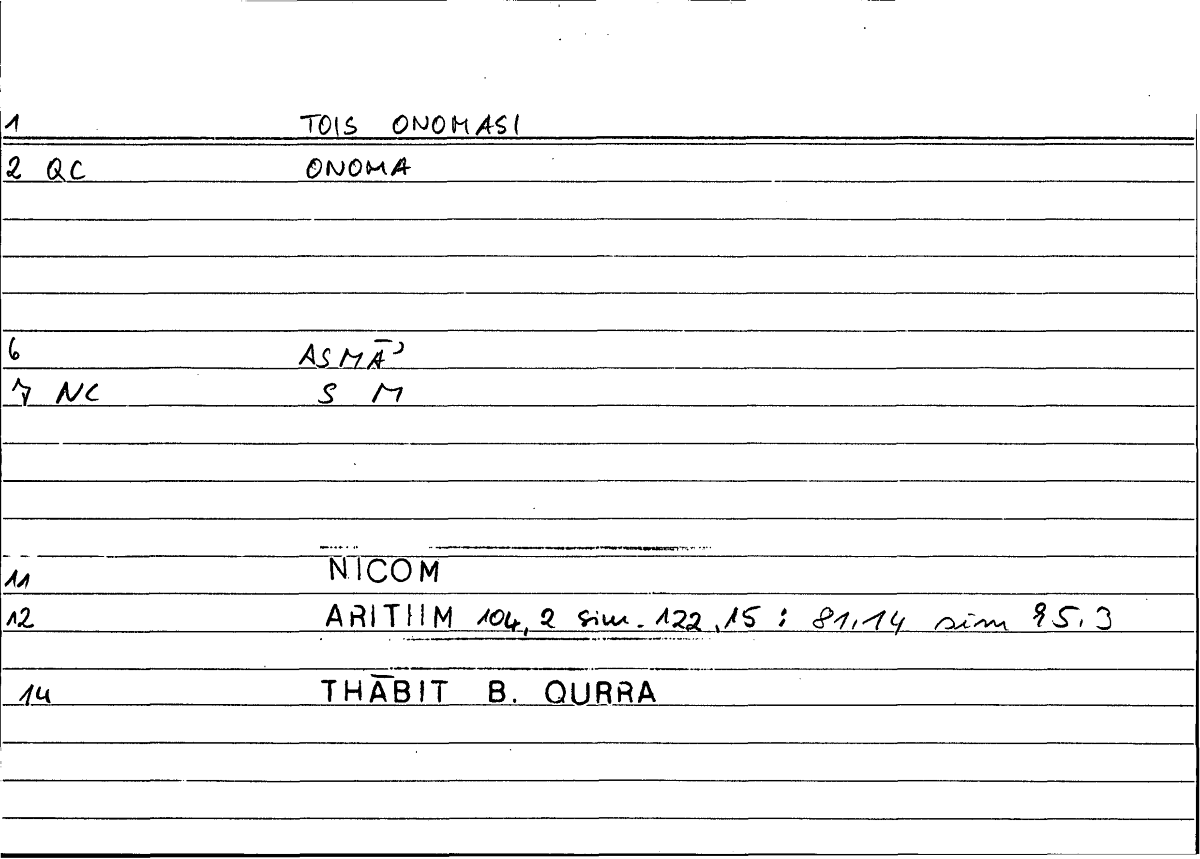 1 TOIS ONOMASI
2 QC ONOMA
6 ASMĀʾ
7 NC S M
11 NICOM
12 ARITHM 104,2 sim. 122,15 : 81,14 sim 95,3
14 THĀBIT B. QURRA